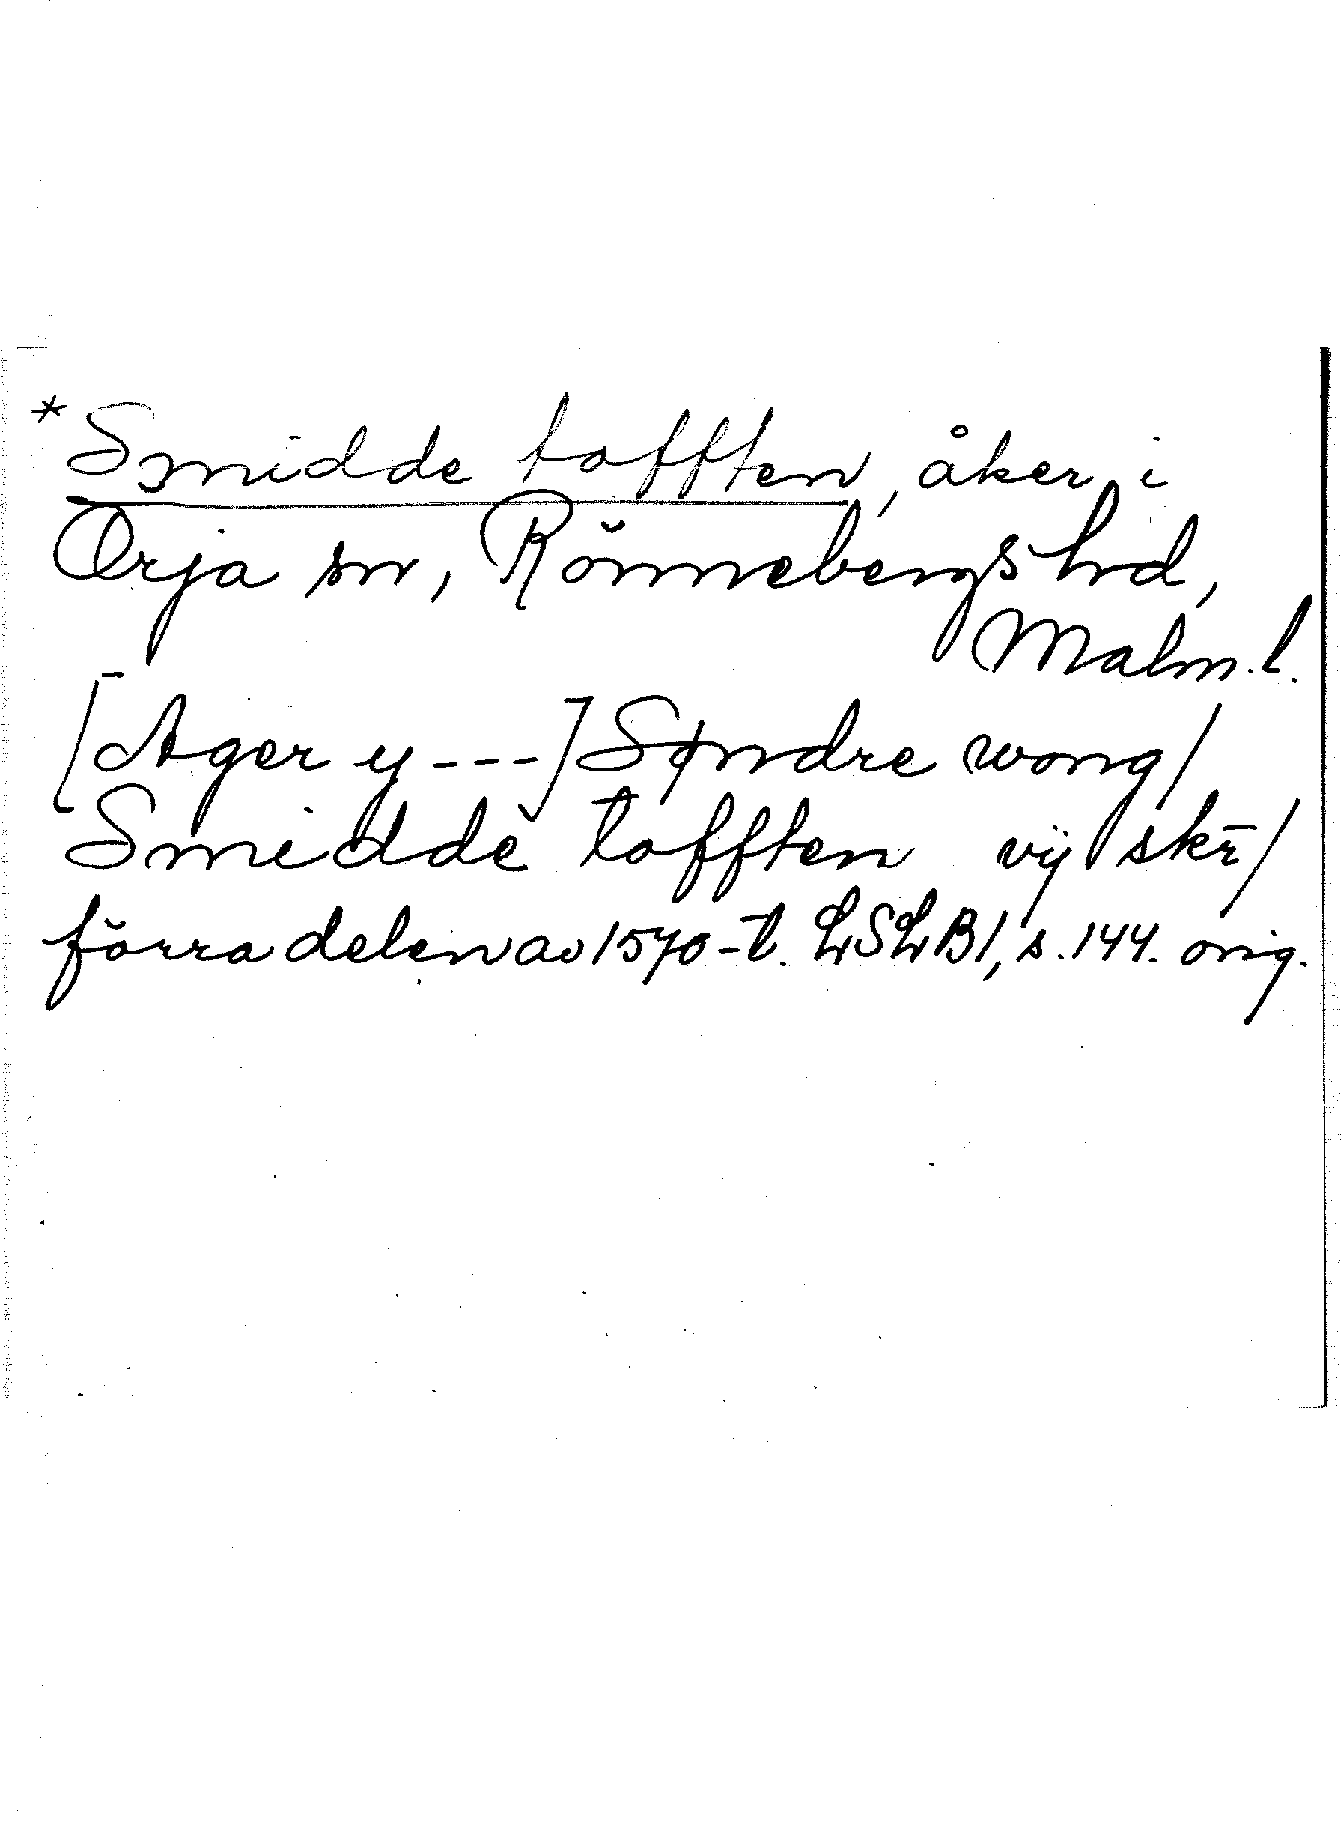 *Smidde tofften, åker i
Örja sn, Rönnebergs hd,
Malm. l.
[Ager y ---] Søndre wong/
Smidde tofften vij skr̄/
förra delen av 1570-t. LSLB1, s. 144. orig.